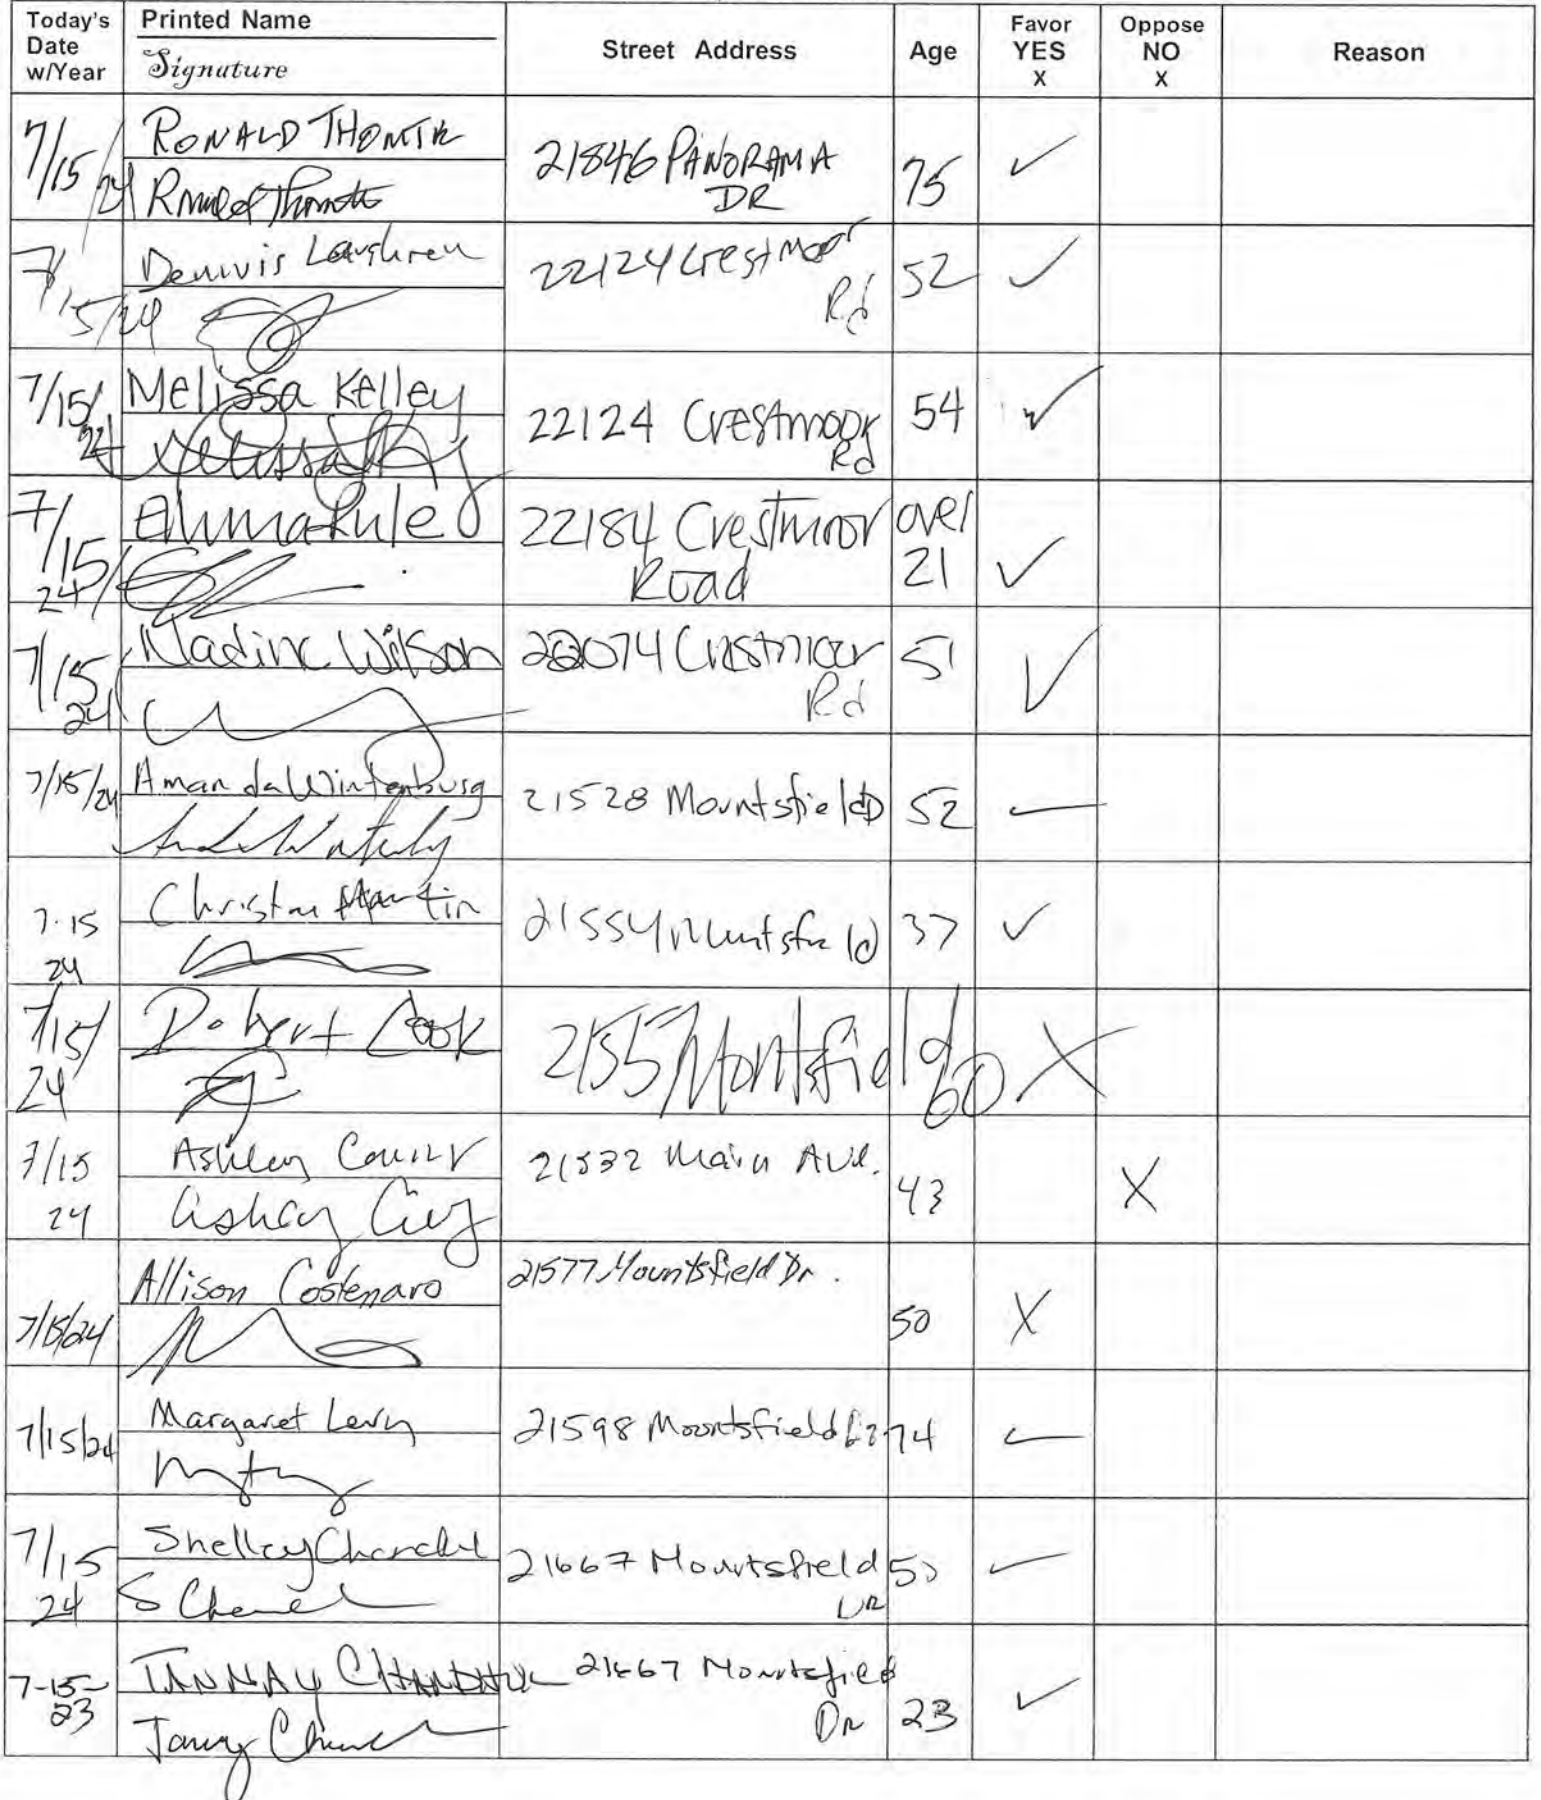 Today's Date w/Year Printed Name Signature Street Address Age Favor YES X Oppose NO X Reason
7/15/24 RONALD THOMTK 21846 PANORAMA DR 75 ✓
7/15/24 Dennis Loughren 22124 Crestmoor Rd 52 ✓
7/15/24 Melissa Kelley 22124 Crestmoor Rd 54 ✓
7/15/24 22184 Crestmoor Road over 21 ✓
7/15/24 Nadine Wilson 22074 Crestmoor Rd 51 ✓
7/15/24 Amanda Wintenburg 21528 Mountsfield D 52 ✓
7.15 24 Martin 21554 Mountsfield 37 ✓
7/15/24 Robert Cook 2155 Montsfield 60 X
7/15 24 Ashley 21532 Main Ave. 43 X
7/15/24 Allison Costenaro 21577 Mountsfield Dr. 50 X
7/15/24 Margaret Levy 21598 Mountsfield 74 ✓
7/15 24 Shelley 21667 Mountsfield DR ✓
7-15-23 TANNAY 21667 Mountsfield Dr 23 ✓